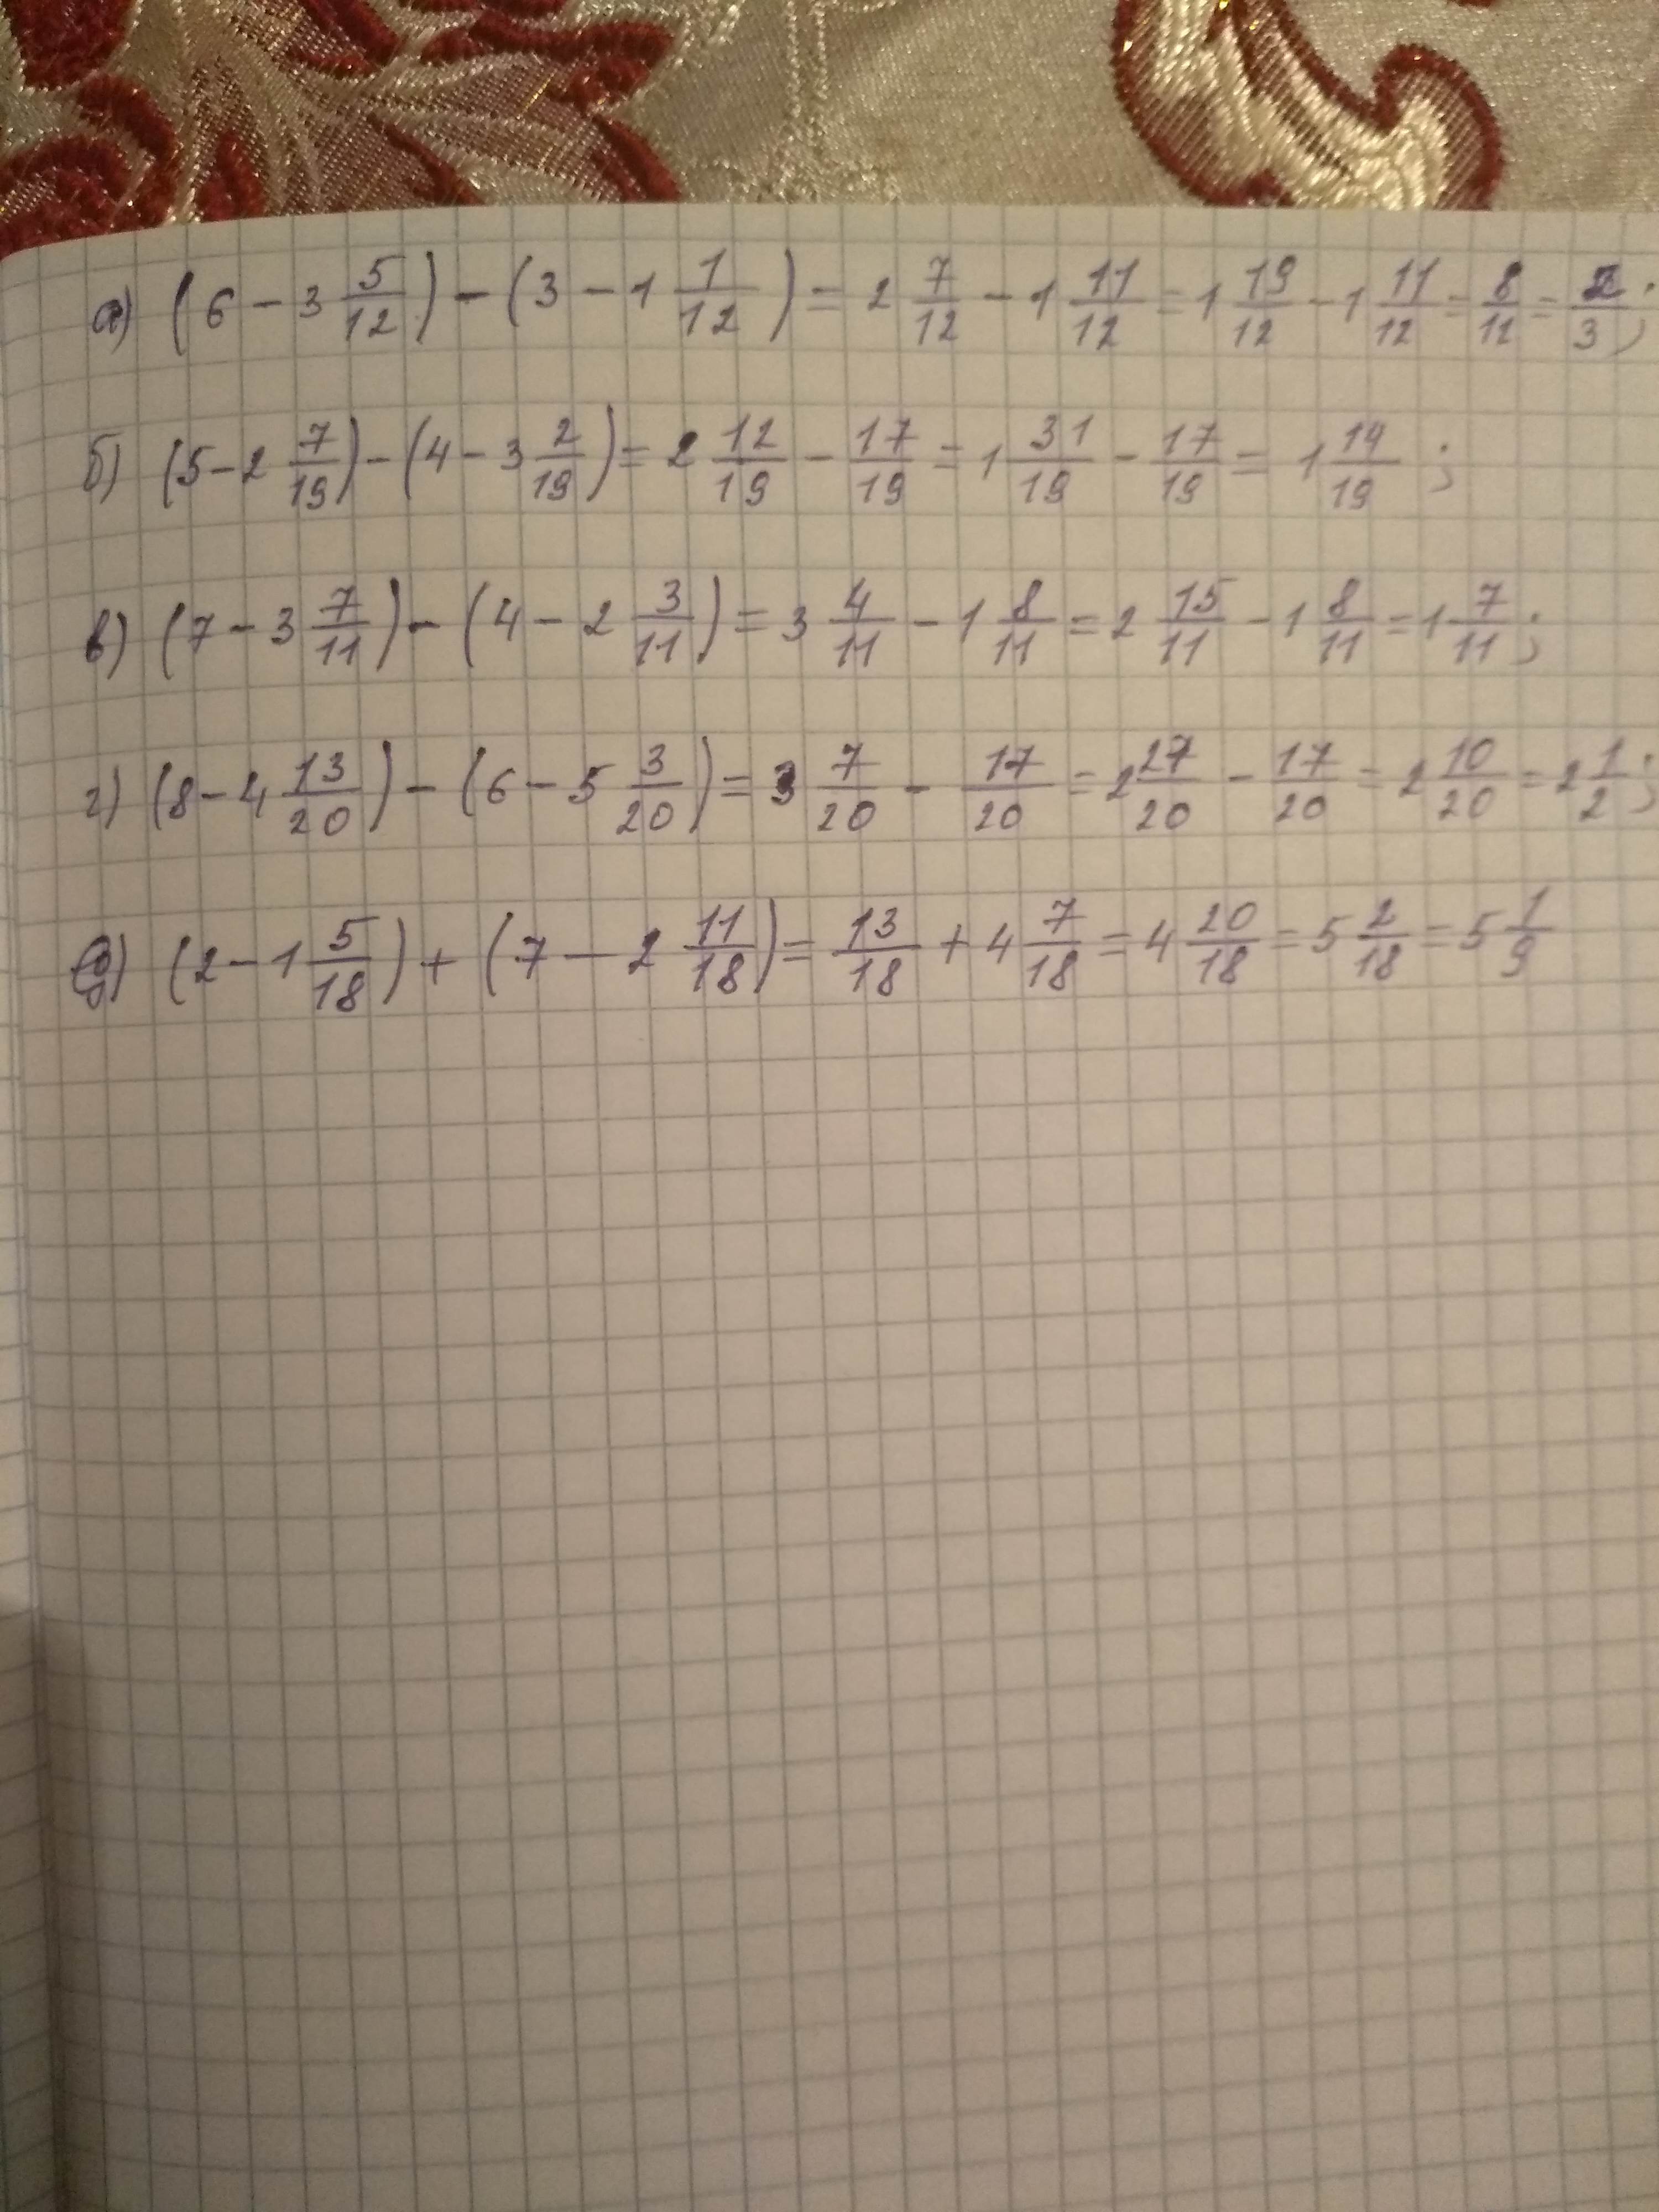 а) (6 - 3 5/12) - (3 - 1 1/12) = 2 7/12 - 1 11/12 = 1 19/12 - 1 11/12 = 8/12 = 2/3;
б) (5 - 2 7/19) - (4 - 3 2/19) = 2 12/19 - 17/19 = 1 31/19 - 17/19 = 1 14/19;
в) (7 - 3 7/11) - (4 - 2 3/11) = 3 4/11 - 1 8/11 = 2 15/11 - 1 8/11 = 1 7/11;
г) (8 - 4 13/20) - (6 - 5 3/20) = 3 7/20 - 17/20 = 2 27/20 - 17/20 = 2 10/20 = 2 1/2;
д) (2 - 1 5/18) + (7 - 2 11/18) = 13/18 + 4 7/18 = 4 20/18 = 5 2/18 = 5 1/9